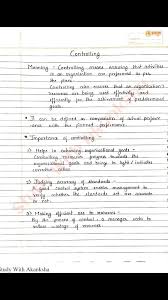 Controlling
Meaning : Controlling means ensuring that activities
in an organisation are performed as per
the plans.
Controlling also ensures that an organisation's
resources are being used effectively and
efficiently for the achievement of predetermined
goals.
It can be defined as comparison of actual
with the planned performance.
Importance of controlling :-
1) Helps in achieving organisational goals -
Controlling measures progress towards the
organisational goals and brings to light / indicates
corrective action.
2) Judging accuracy of standards -
A good control system enables management to
verify whether the standards set are accurate
or not.
3) Making efficient use of resources -
By the process of control, a manager seeks to
reduce wastage of resources.
Study With Akanksha